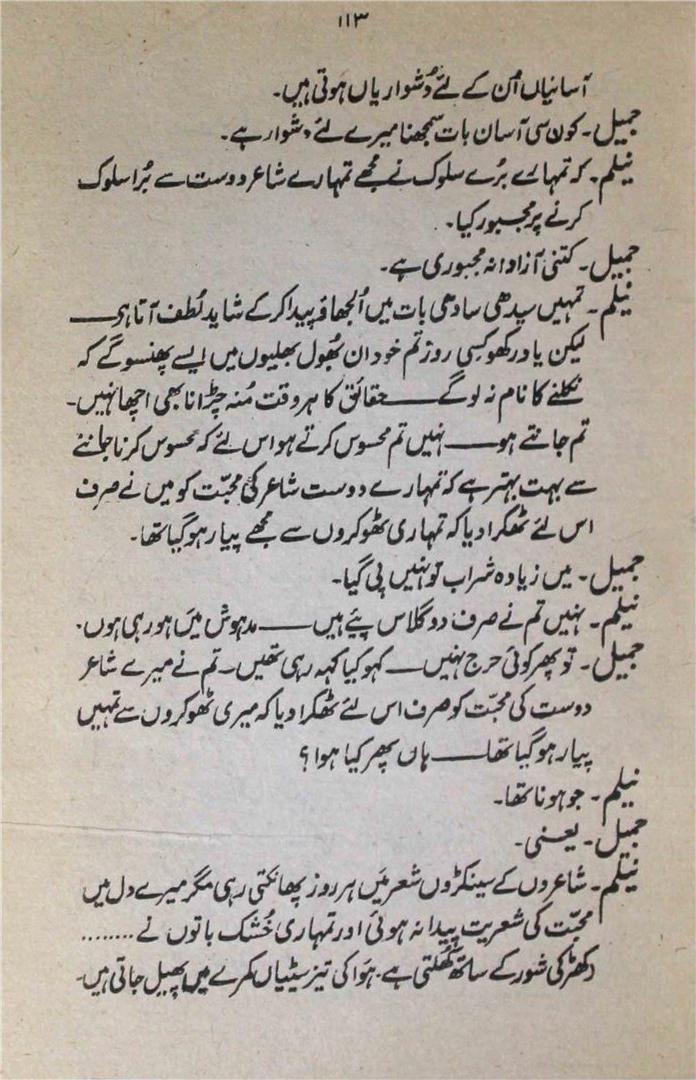 ۱۱۳
آسانیاں اُن کے لئے دُشواریاں ہوتی ہیں۔
جمیل۔ کون سی آسان بات سمجھنا میرے لئے دشوار ہے۔
نیلم۔ کہ تمہارے بُرے سلوک نے مجھے تمہارے شاعر دوست سے بُرا سلوک
کرنے پر مجبور کیا۔
جمیل۔ کتنی آزادانہ مجبوری ہے۔
نیلم۔ تمہیں سیدھی سادھی بات میں اُلجھاؤ پیدا کر کے شاید لُطف آتا ہے——
لیکن یاد رکھو کسی روز تم خود ان بھُول بھلیوں میں ایسے پھنسو گے کہ
نکلنے کا نام نہ لو گے —— حقائق کا ہر وقت مُنہ چڑانا بھی اچھا نہیں۔
تم جانتے ہو —— نہیں تم محسوس کرتے ہو اس لئے کہ محسوس کرنا جاننے
سے بہت بہتر ہے کہ تمہارے دوست شاعر کی محبّت کو میں نے صرف
اس لئے ٹھکرا دیا کہ تمہاری ٹھوکروں سے مجھے پیار ہو گیا تھا۔
جمیل۔ میں زیادہ شراب تو نہیں پی گیا۔
نیلم۔ نہیں تم نے صرف دو گلاس پئے ہیں —— مدہوش میں ہو رہی ہوں۔
جمیل۔ تو پھر کوئی حرج نہیں —— کہو کیا کہہ رہی تھیں۔ تم نے میرے شاعر
دوست کی محبّت کو صرف اس لئے ٹھکرا دیا کہ میری ٹھوکروں سے تمہیں
پیار ہو گیا تھا —— ہاں پھر کیا ہوا ؟
نیلم۔ جو ہونا تھا۔
جمیل۔ یعنی۔
نیلم۔ شاعروں کے سینکڑوں شعر میں ہر روز پھانکتی رہی مگر میرے دل میں
محبّت کی شعریت پیدا نہ ہوئی اور تمہاری خُشک باتوں نے ........
دکھڑکی شور کے ساتھ کھُلتی ہے۔ ہَوا کی تیز سیٹیاں کمرے میں پھیل جاتی ہیں۔